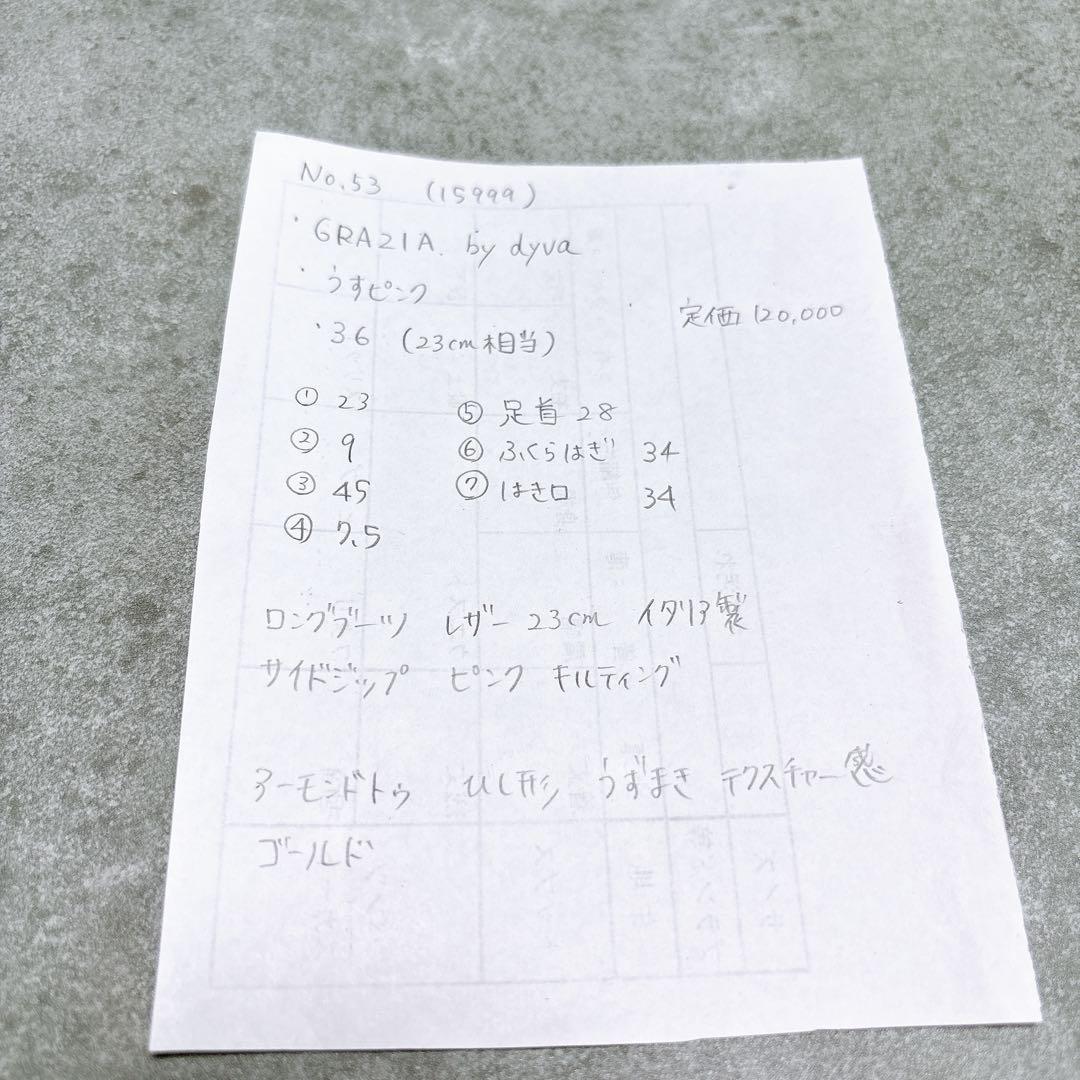 No.53 (15999)
・GRAZIA. by dyva
・うすピンク
・定価 120,000
・36 (23cm相当)
① 23
② 9
③ 45
④ 7.5
⑤ 足首 28
⑥ ふくらはぎ 34
⑦ はき口 34
ロングブーツ レザー 23cm イタリア製
サイドジップ ピンク キルティング
アーモンドトゥ ひし形 うずまき テクスチャー感
ゴールド